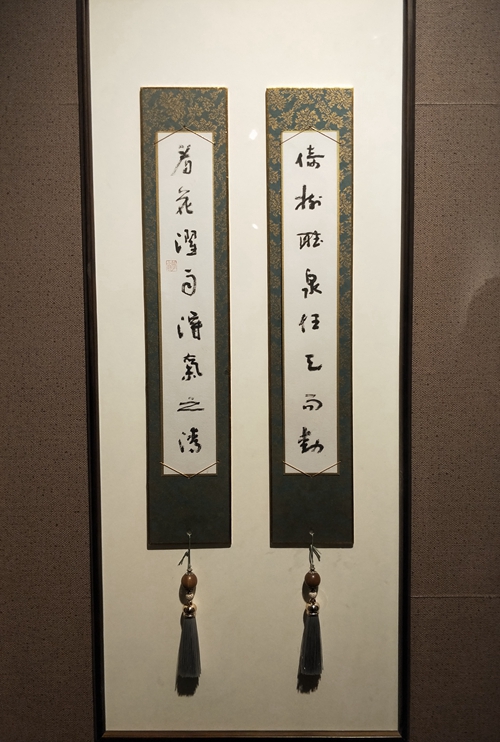 倚樹聽泉任天而動
看花濯雨得氣之清